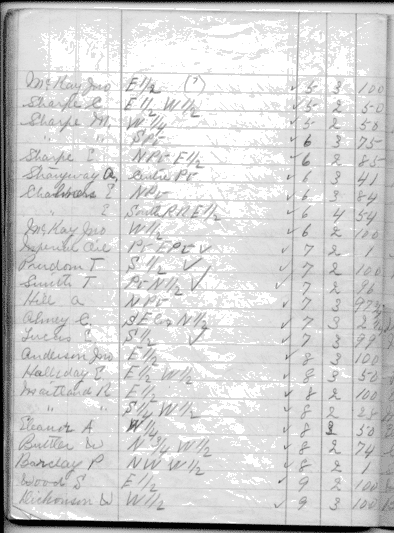 McKay Jno E 1/2 (?) ✓ 5 3 100
Sharpe E 1/2 W 1/2 ✓ 5 2 50
Sharpe M. W 1/4 ✓ 5 2 50
" " S Pt ✓ 6 3 75
Sharpe E. N Pt E 1/2 ✓ 6 2 85
Strangway A, Centre Pt ✓ 6 3 41
E N Pt ✓ 6 3 84
" E South E 1/2 ✓ 6 4 54
McKay Jno W 1/2 ✓ 6 2 100
Imperial Oil Pt E Pt ✓ ✓ 7 2 1
T S 1/2 ✓ ✓ 7 2 100
Smith T Pt N 1/2 ✓ ✓ 7 2 96
Hill A N Pt ✓ 7 3
Olmey C N 1/2 ✓ 7 3
Lucas E S 1/2 ✓ ✓ 7 3 99
Anderson Jno E 1/2 ✓ 8 3 100
Halliday E E 1/2 W 1/2 ✓ 8 3 50
Maitland R E 1/2 ✓ 8 2 100
" " S 1/4 W 1/2 ✓ 8 2 25
Eleanor A W 1/4 ✓ 8 3 50
Buttler W N 3/4 W 1/2 ✓ 8 2 74
Barclay P NW W 1/2 ✓ 8 2 1
Wood S E 1/2 ✓ 9 2 100
Dickonson W W 1/2 ✓ 9 3 100